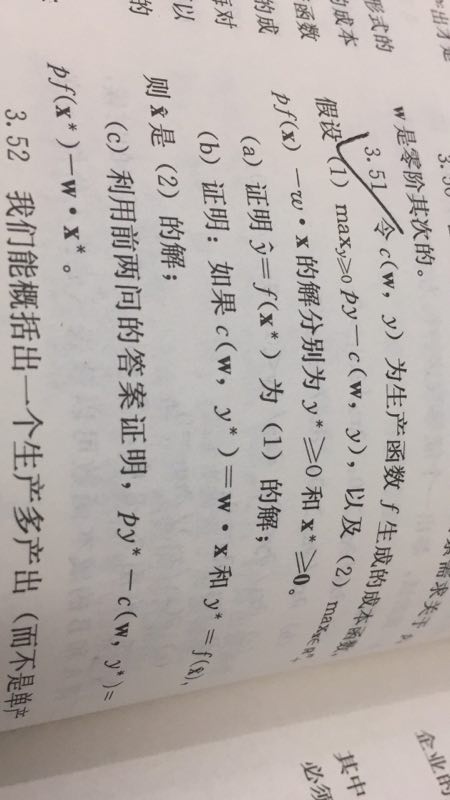 形式的
的成本
函数
的成
每对
可以
的
3.50
w 是零阶其次的。
3.51 令 c(w, y) 为生产函数 f 生成的成本函数
假设 (1) max_{y≥0} py－c(w, y)，以及 (2) max
pf(x)－w·x 的解分别为 y*≥0 和 x*≥0。
(a) 证明 ŷ=f(x*) 为 (1) 的解；
(b) 证明：如果 c(w, y*)=w·x 和 y*=f(x̂)，
则 x̂ 是 (2) 的解；
(c) 利用前两问的答案证明，py*－c(w, y*)=
pf(x*)－w·x*。
3.52 我们能概括出一个生产多产出 (而不是单产
企业的
其中
必须